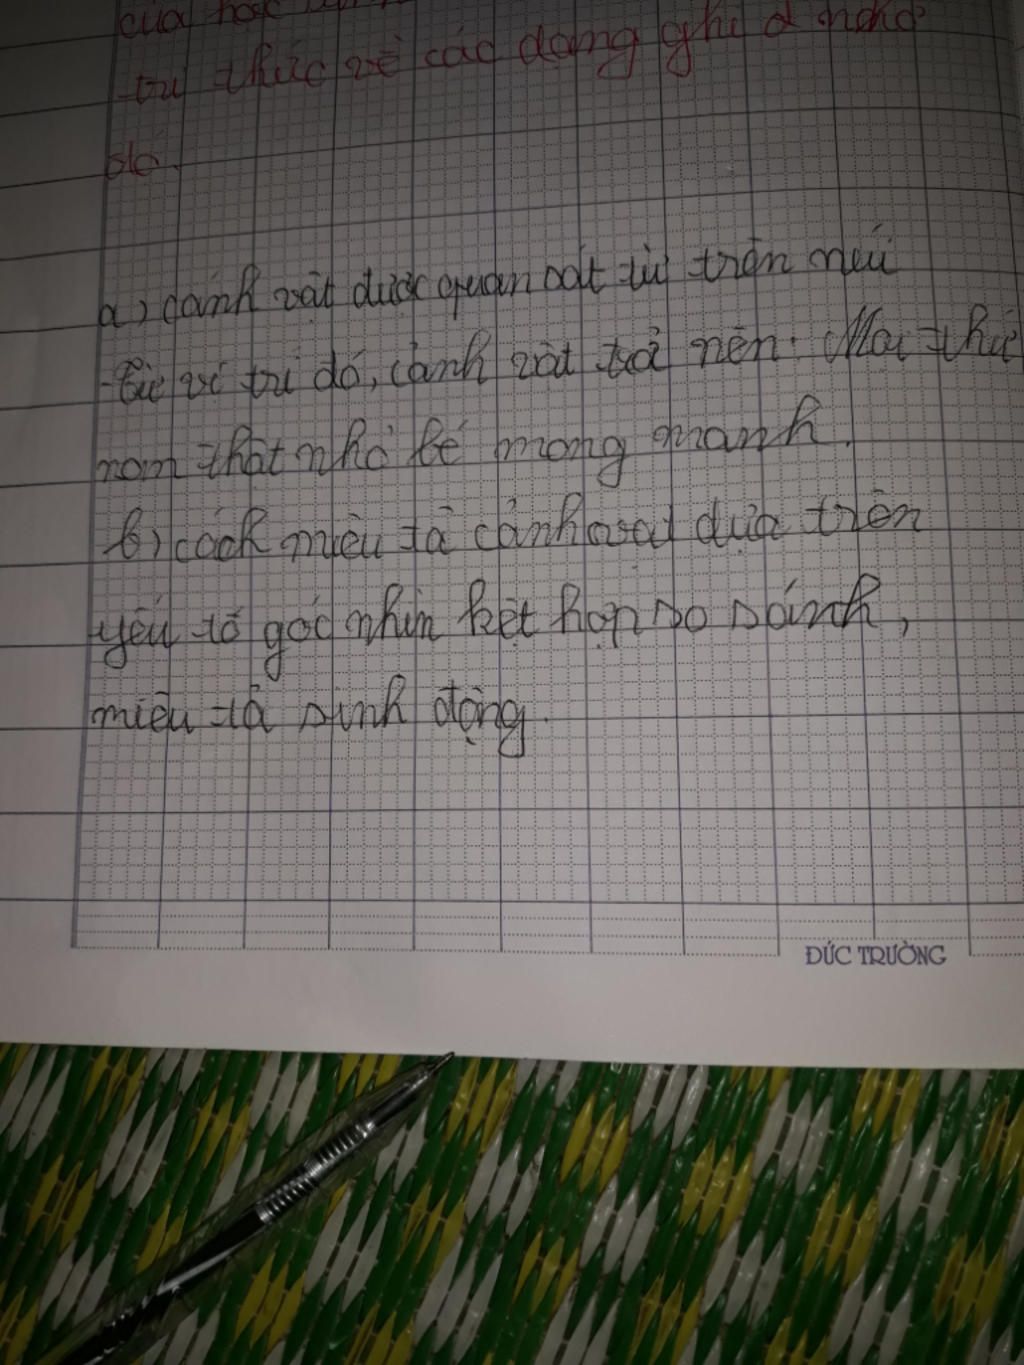 của học
trí thức về các dạng ghi ở nhớ
đó.
a) cảnh vật được quan sát từ trên núi
- Từ vị trí đó, cảnh vật trở nên: Mọi thứ
nom thật nhỏ bé mong manh.
b) cách miêu tả cảnh vật dựa trên
yếu tố góc nhìn kết hợp so sánh,
miêu tả sinh động.
ĐỨC TRƯỜNG